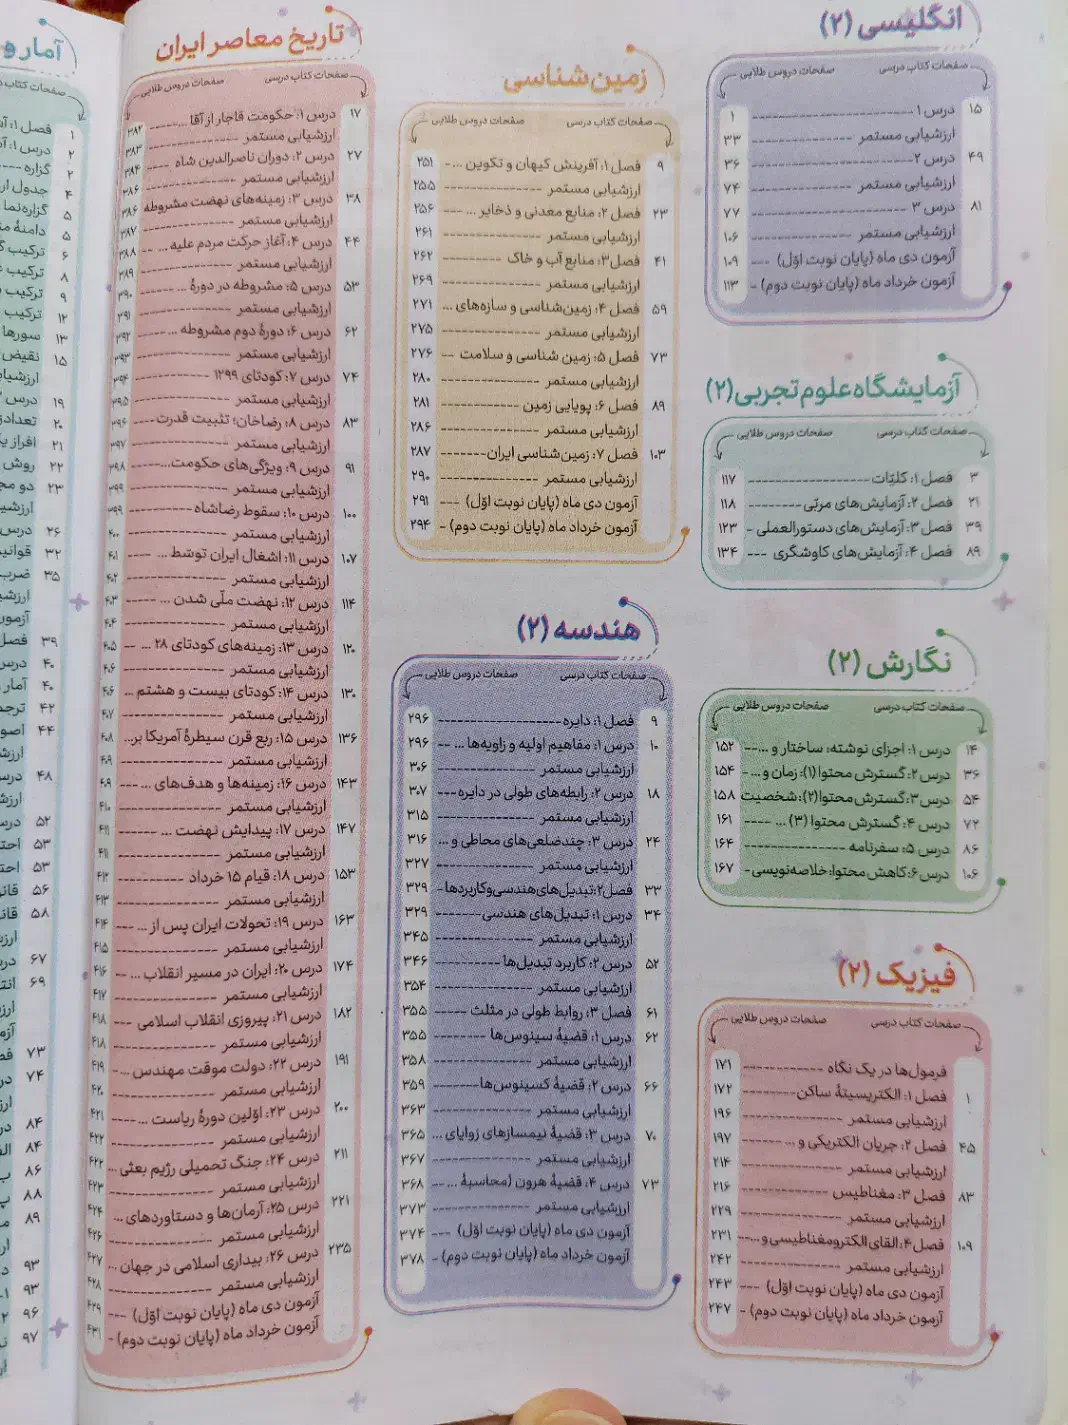 انگلیسی (۲)
صفحات کتاب درسی صفحات دروس طلایی
۱۵ درس ۱ ۱
ارزشیابی مستمر ۳۳
۴۹ درس ۲ ۳۶
ارزشیابی مستمر ۷۴
۸۱ درس ۳ ۷۷
ارزشیابی مستمر ۱۰۶
آزمون دی ماه (پایان نوبت اوّل) ۱۰۹
آزمون خرداد ماه (پایان نوبت دوم) ۱۱۳
آزمایشگاه علوم تجربی (۲)
صفحات کتاب درسی صفحات دروس طلایی
۳ فصل ۱: کلیّات ۱۱۷
۲۱ فصل ۲: آزمایش‌های مرئی ۱۱۸
۳۹ فصل ۳: آزمایش‌های دستورالعملی ۱۲۳
۸۹ فصل ۴: آزمایش‌های کاوشگری ۱۳۴
نگارش (۲)
صفحات کتاب درسی صفحات دروس طلایی
۱۴ درس ۱: اجزای نوشته: ساختار و ... ۱۵۲
۳۶ درس ۲: گسترش محتوا (۱): زمان و ... ۱۵۴
۵۴ درس ۳: گسترش محتوا (۲): شخصیت ۱۵۸
۷۲ درس ۴: گسترش محتوا (۳) ... ۱۶۱
۸۶ درس ۵: سفرنامه ۱۶۴
۱۰۶ درس ۶: کاهش محتوا: خلاصه‌نویسی ۱۶۷
فیزیک (۲)
صفحات کتاب درسی صفحات دروس طلایی
فرمول‌ها در یک نگاه ۱۷۱
۱ فصل ۱: الکتریسیتۀ ساکن ۱۷۲
ارزشیابی مستمر ۱۹۶
۴۵ فصل ۲: جریان الکتریکی و ... ۱۹۷
ارزشیابی مستمر ۲۱۴
۸۳ فصل ۳: مغناطیس ۲۱۶
ارزشیابی مستمر ۲۲۹
۱۰۹ فصل ۴: القای الکترومغناطیسی و ... ۲۳۱
ارزشیابی مستمر ۲۴۲
آزمون دی ماه (پایان نوبت اوّل) ۲۴۳
آزمون خرداد ماه (پایان نوبت دوم) ۲۴۷
زمین شناسی
صفحات کتاب درسی صفحات دروس طلایی
۹ فصل ۱: آفرینش کیهان و تکوین ... ۲۵۱
ارزشیابی مستمر ۲۵۵
۲۳ فصل ۲: منابع معدنی و ذخایر ... ۲۵۶
ارزشیابی مستمر ۲۶۱
۴۱ فصل ۳: منابع آب و خاک ۲۶۲
ارزشیابی مستمر ۲۶۹
۵۹ فصل ۴: زمین‌شناسی و سازه‌های ... ۲۷۱
ارزشیابی مستمر ۲۷۵
۷۳ فصل ۵: زمین شناسی و سلامت ۲۷۶
ارزشیابی مستمر ۲۸۰
۸۹ فصل ۶: پویایی زمین ۲۸۱
ارزشیابی مستمر ۲۸۶
۱۰۳ فصل ۷: زمین‌شناسی ایران ۲۸۷
ارزشیابی مستمر ۲۹۰
آزمون دی ماه (پایان نوبت اوّل) ۲۹۱
آزمون خرداد ماه (پایان نوبت دوم) ۲۹۴
هندسه (۲)
صفحات کتاب درسی صفحات دروس طلایی
۹ فصل ۱: دایره ۲۹۶
۱۰ درس ۱: مفاهیم اولیه و زاویه‌ها ... ۲۹۶
ارزشیابی مستمر ۳۰۶
۱۸ درس ۲: رابطه‌های طولی در دایره ۳۰۷
ارزشیابی مستمر ۳۱۵
۲۴ درس ۳: چندضلعی‌های محاطی و ... ۳۱۶
ارزشیابی مستمر ۳۲۷
۳۳ فصل ۲: تبدیل‌های هندسی و کاربردها ۳۲۹
۳۴ درس ۱: تبدیل‌های هندسی ۳۲۹
ارزشیابی مستمر ۳۴۵
۵۲ درس ۲: کاربرد تبدیل‌ها ۳۴۶
ارزشیابی مستمر ۳۵۴
۶۱ فصل ۳: روابط طولی در مثلث ۳۵۵
۶۲ درس ۱: قضیۀ سینوس‌ها ۳۵۵
ارزشیابی مستمر ۳۵۸
۶۶ درس ۲: قضیۀ کسینوس‌ها ۳۵۹
ارزشیابی مستمر ۳۶۳
۷۰ درس ۳: قضیۀ نیمسازهای زوایای ... ۳۶۵
ارزشیابی مستمر ۳۶۷
۷۳ درس ۴: قضیۀ هرون (محاسبۀ ... ۳۶۸
ارزشیابی مستمر ۳۷۳
آزمون دی ماه (پایان نوبت اوّل) ۳۷۴
آزمون خرداد ماه (پایان نوبت دوم) ۳۷۸
تاریخ معاصر ایران
صفحات کتاب درسی صفحات دروس طلایی
۱۷ درس ۱: حکومت قاجار از آقا ... ۳۸۲
ارزشیابی مستمر ۳۸۳
۲۷ درس ۲: دوران ناصرالدین شاه ۳۸۴
ارزشیابی مستمر ۳۸۶
۳۸ درس ۳: زمینه‌های نهضت مشروطه ۳۸۶
ارزشیابی مستمر ۳۸۷
۴۴ درس ۴: آغاز حرکت مردم علیه ... ۳۸۸
ارزشیابی مستمر ۳۸۹
۵۳ درس ۵: مشروطه در دورۀ ... ۳۹۰
ارزشیابی مستمر ۳۹۱
۶۲ درس ۶: دورۀ دوم مشروطه ... ۳۹۲
ارزشیابی مستمر ۳۹۳
۷۴ درس ۷: کودتای ۱۲۹۹ ۳۹۴
ارزشیابی مستمر ۳۹۵
۸۳ درس ۸: رضاخان؛ تثبیت قدرت ۳۹۶
ارزشیابی مستمر ۳۹۷
۹۱ درس ۹: ویژگی‌های حکومت... ۳۹۸
ارزشیابی مستمر ۳۹۹
۱۰۰ درس ۱۰: سقوط رضاشاه ۳۹۹
ارزشیابی مستمر ۴۰۰
۱۰۷ درس ۱۱: اشغال ایران توسّط ... ۴۰۱
ارزشیابی مستمر ۴۰۲
۱۱۴ درس ۱۲: نهضت ملّی شدن ... ۴۰۳
ارزشیابی مستمر ۴۰۴
۱۲۰ درس ۱۳: زمینه‌های کودتای ۲۸ ... ۴۰۵
ارزشیابی مستمر ۴۰۶
۱۳۰ درس ۱۴: کودتای بیست و هشتم ... ۴۰۶
ارزشیابی مستمر ۴۰۷
۱۳۶ درس ۱۵: ربع قرن سیطرۀ آمریکا بر... ۴۰۸
ارزشیابی مستمر ۴۰۹
۱۴۳ درس ۱۶: زمینه‌ها و هدف‌های ... ۴۰۹
ارزشیابی مستمر ۴۱۰
۱۴۷ درس ۱۷: پیدایش نهضت ... ۴۱۱
ارزشیابی مستمر ۴۱۱
۱۵۳ درس ۱۸: قیام ۱۵ خرداد ۴۱۲
ارزشیابی مستمر ۴۱۳
۱۶۳ درس ۱۹: تحولات ایران پس از ... ۴۱۴
ارزشیابی مستمر ۴۱۵
۱۷۴ درس ۲۰: ایران در مسیر انقلاب ... ۴۱۶
ارزشیابی مستمر ۴۱۷
۱۸۲ درس ۲۱: پیروزی انقلاب اسلامی ۴۱۸
ارزشیابی مستمر ۴۱۸
۱۹۱ درس ۲۲: دولت موقت مهندس ... ۴۱۹
ارزشیابی مستمر ۴۲۰
۲۰۰ درس ۲۳: اوّلین دورۀ ریاست ... ۴۲۱
ارزشیابی مستمر ۴۲۲
۲۱۱ درس ۲۴: جنگ تحمیلی رژیم بعثی ... ۴۲۲
ارزشیابی مستمر ۴۲۳
۲۲۱ درس ۲۵: آرمان‌ها و دستاوردهای ... ۴۲۴
ارزشیابی مستمر ۴۲۶
۲۳۵ درس ۲۶: بیداری اسلامی در جهان ... ۴۲۷
ارزشیابی مستمر ۴۲۸
آزمون دی ماه (پایان نوبت اوّل) ۴۲۹
آزمون خرداد ماه (پایان نوبت دوم) ۴۳۱
آمار و
صفحات کتاب
۱ فصل ۱:
۲ درس ۱:
۲ گزاره
۴ جدول
۵ گزاره‌نما
۵ دامنۀ
۶ ترکیب
۸ ترکیب
۹ ترکیب
۱۲ ترکیب
۱۳ سورها
۱۵ نقیض